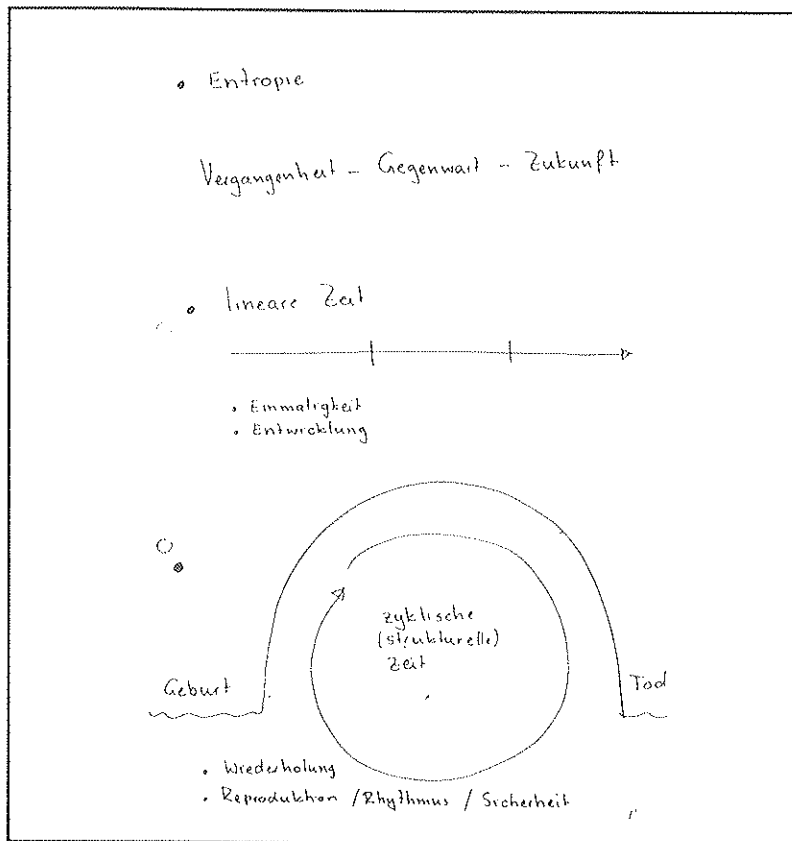 • Entropie
Vergangenheit – Gegenwart – Zukunft
• lineare Zeit
• Einmaligkeit
• Entwicklung
zyklische
(strukturelle)
Zeit
Geburt
Tod
• Wiederholung
• Reproduktion / Rhythmus / Sicherheit